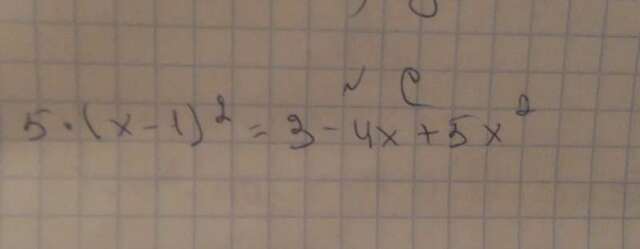 5·(x-1)² = 3-4x+5x²